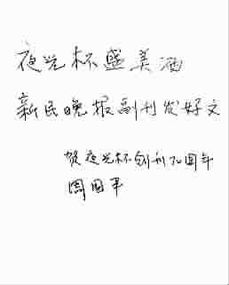 夜光杯盛美酒
新民晚报副刊发好文
贺夜光杯创刊70周年
周国平